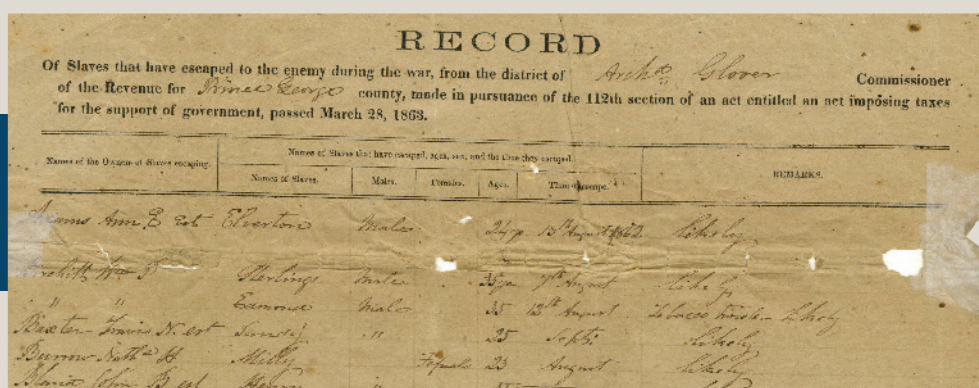 RECORD
Of Slaves that have escaped to the enemy during the war, from the district of Archd Glover Commissioner
of the Revenue for Prince George county, made in pursuance of the 112th section of an act entitled an act imposing taxes
for the support of government, passed March 28, 1863.
Names of the Owners of Slaves escaping. Names of Slaves that have escaped, ages, sex, and the time they escaped. REMARKS.
Names of Slaves. Males. Females. Ages. Time of escape.
Ann E est Elverton Male 13th August 1862 Likely
Wm Sterling Male 35 7th August Likely
" " Male 35 12th August Tobacco twister Likely
Baxter N. est " 25 Sept Likely
Burrow Nath H Milly Female 23 August Likely
John B est Henry "